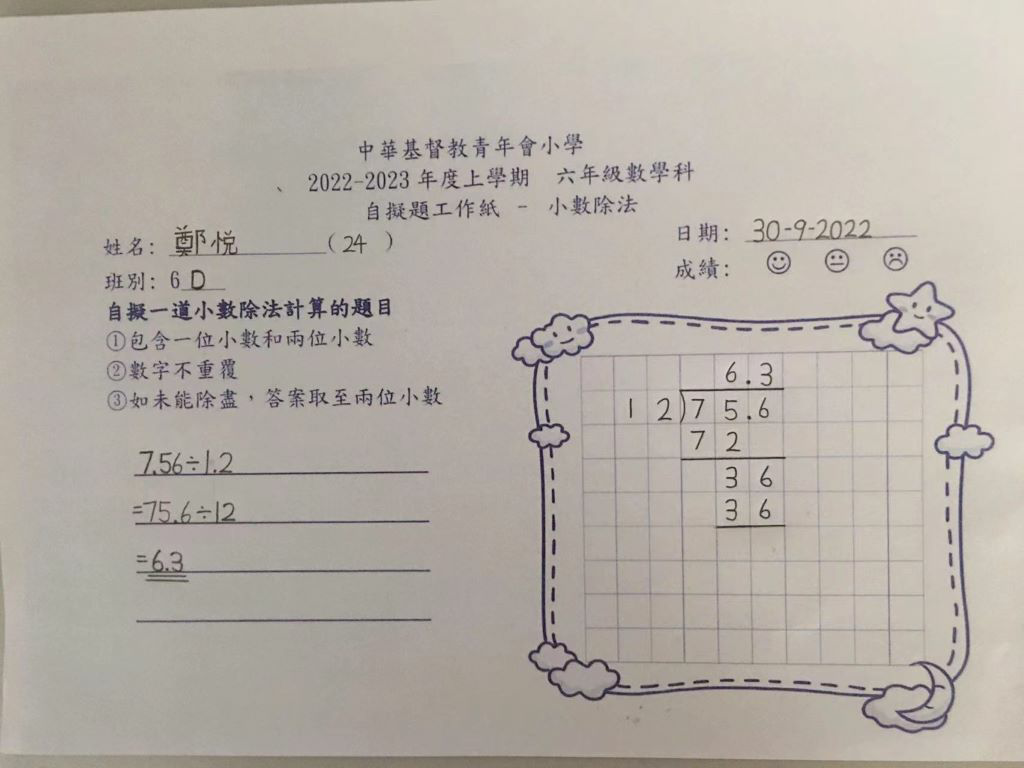 中華基督教青年會小學
、 2022-2023 年度上學期 六年級數學科
自擬題工作紙 - 小數除法
姓名: 鄭悅 (24 )
日期: 30-9-2022
成績:
班別: 6 D
自擬一道小數除法計算的題目
①包含一位小數和兩位小數
②數字不重覆
③如未能除盡，答案取至兩位小數
7.56÷1.2
=75.6÷12
=6.3
6.3
12)75.6
72
36
36